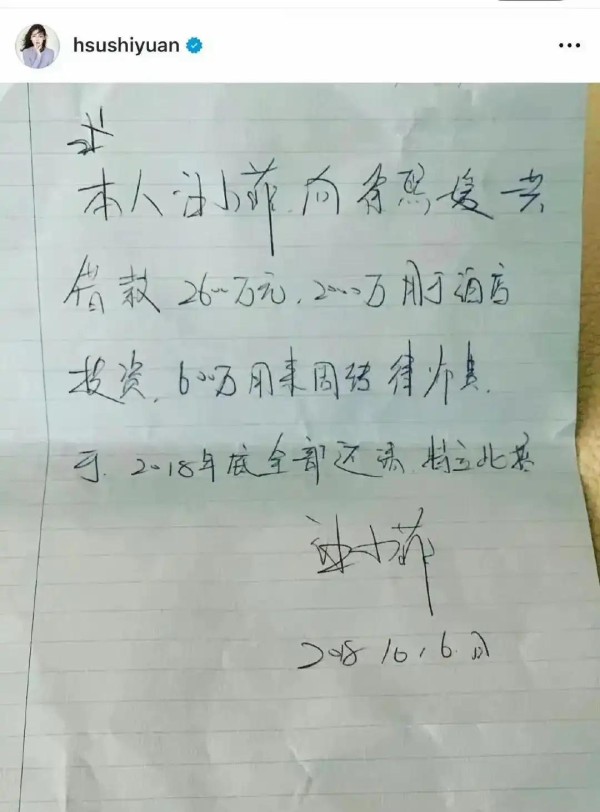 hsushiyuan
本人汪小菲,向徐熙媛共
借款2600万元,2000万用于酒店
投资,600万用来周转律师费.
于2018年底全部还清,特立此据
汪小菲
2018 10, 6.日